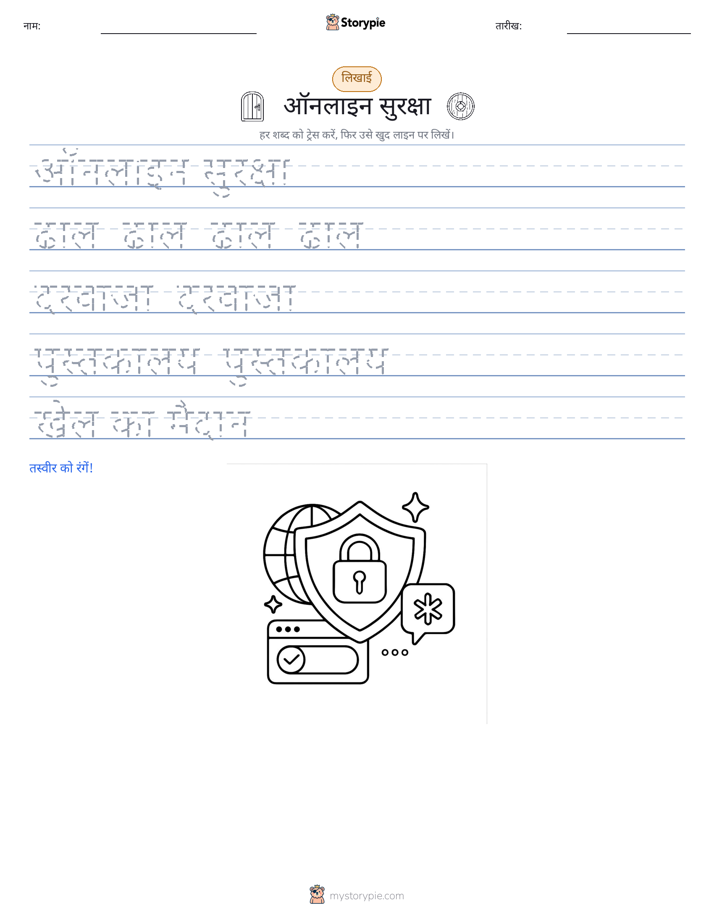 नाम:
Storypie
तारीख:
लिखाई
ऑनलाइन सुरक्षा
हर शब्द को ट्रेस करें, फिर उसे खुद लाइन पर लिखें।
ऑनलाइन सुरक्षा
ढाल ढाल ढाल ढाल
दरवाजा दरवाजा
पुस्तकालय पुस्तकालय
खेल का मैदान
तस्वीर को रंगें!
mystorypie.com